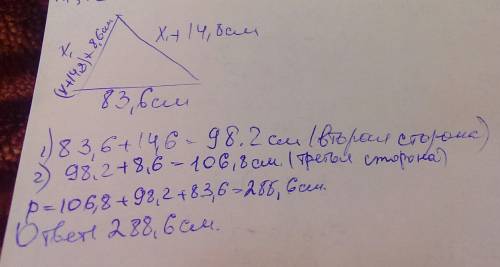 x₁
(x+14,8)+8,6см
x₁+14,8см
83,6см
1) 83,6+14,6=98.2см (вторая сторона)
2) 98.2+8,6=106,8см (третья сторона)
P=106,8+98,2+83,6=288,6см.
Ответ 288,6см.